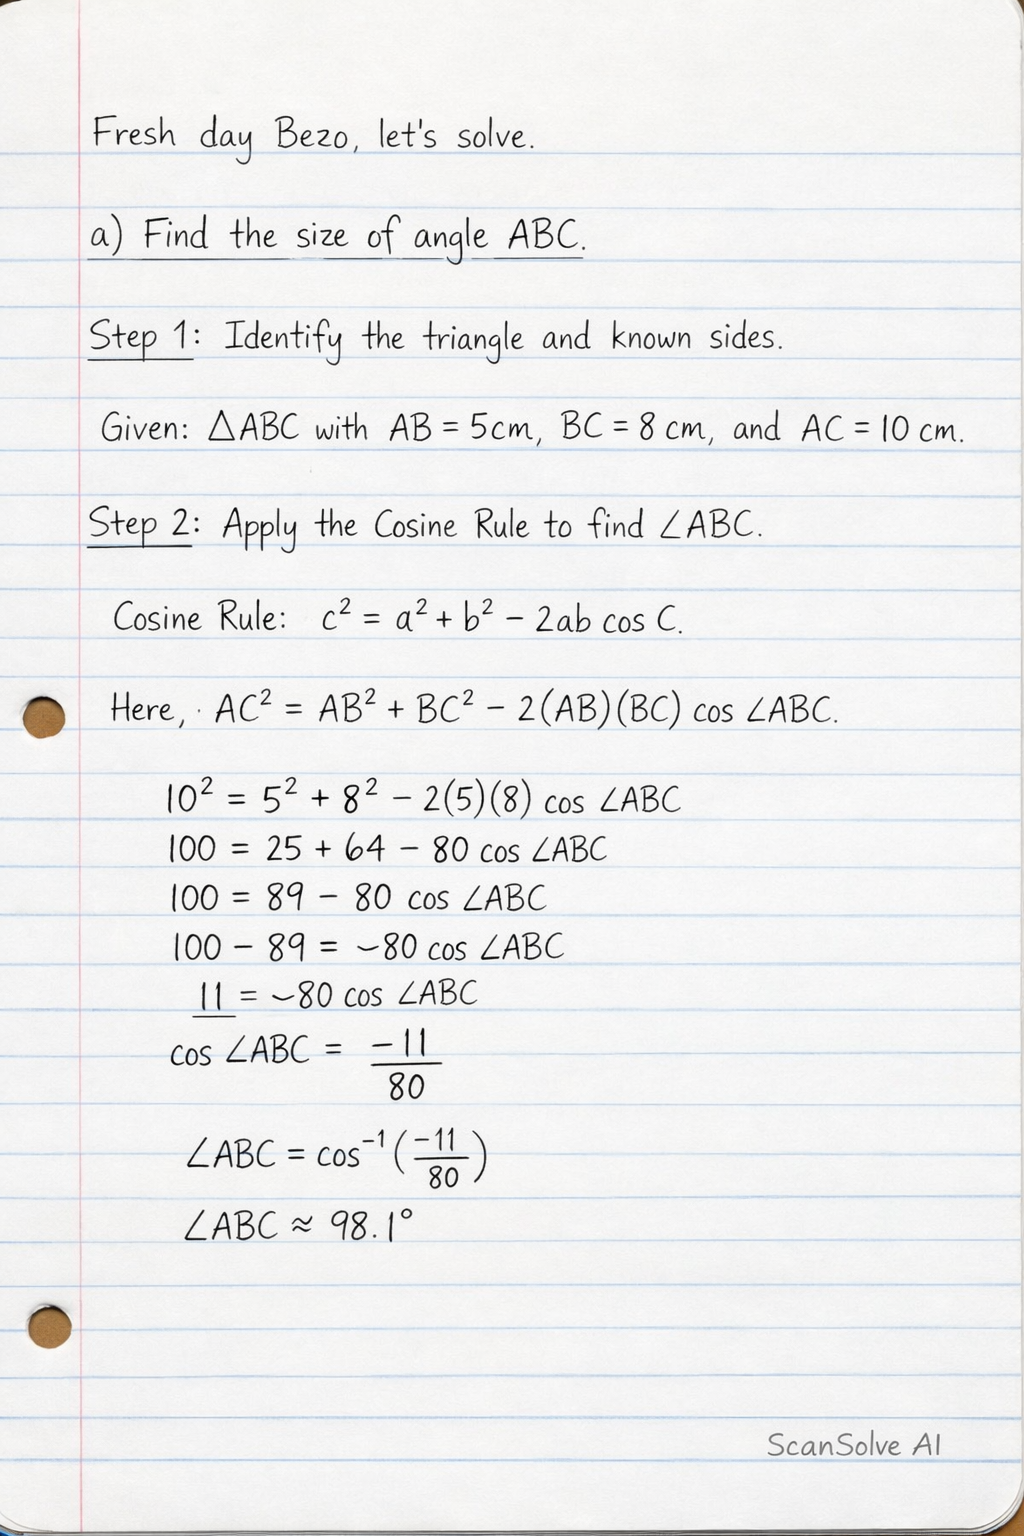 Fresh day Bezo, let's solve.
a) Find the size of angle ABC.
Step 1: Identify the triangle and known sides.
Given: △ABC with AB = 5cm, BC = 8 cm, and AC = 10 cm.
Step 2: Apply the Cosine Rule to find ∠ABC.
Cosine Rule: c² = a² + b² − 2ab cos C.
Here, · AC² = AB² + BC² − 2(AB)(BC) cos ∠ABC.
10² = 5² + 8² − 2(5)(8) cos ∠ABC
100 = 25 + 64 − 80 cos ∠ABC
100 = 89 − 80 cos ∠ABC
100 − 89 = −80 cos ∠ABC
11 = −80 cos ∠ABC
cos ∠ABC = −11/80
∠ABC = cos⁻¹(−11/80)
∠ABC ≈ 98.1°
ScanSolve AI